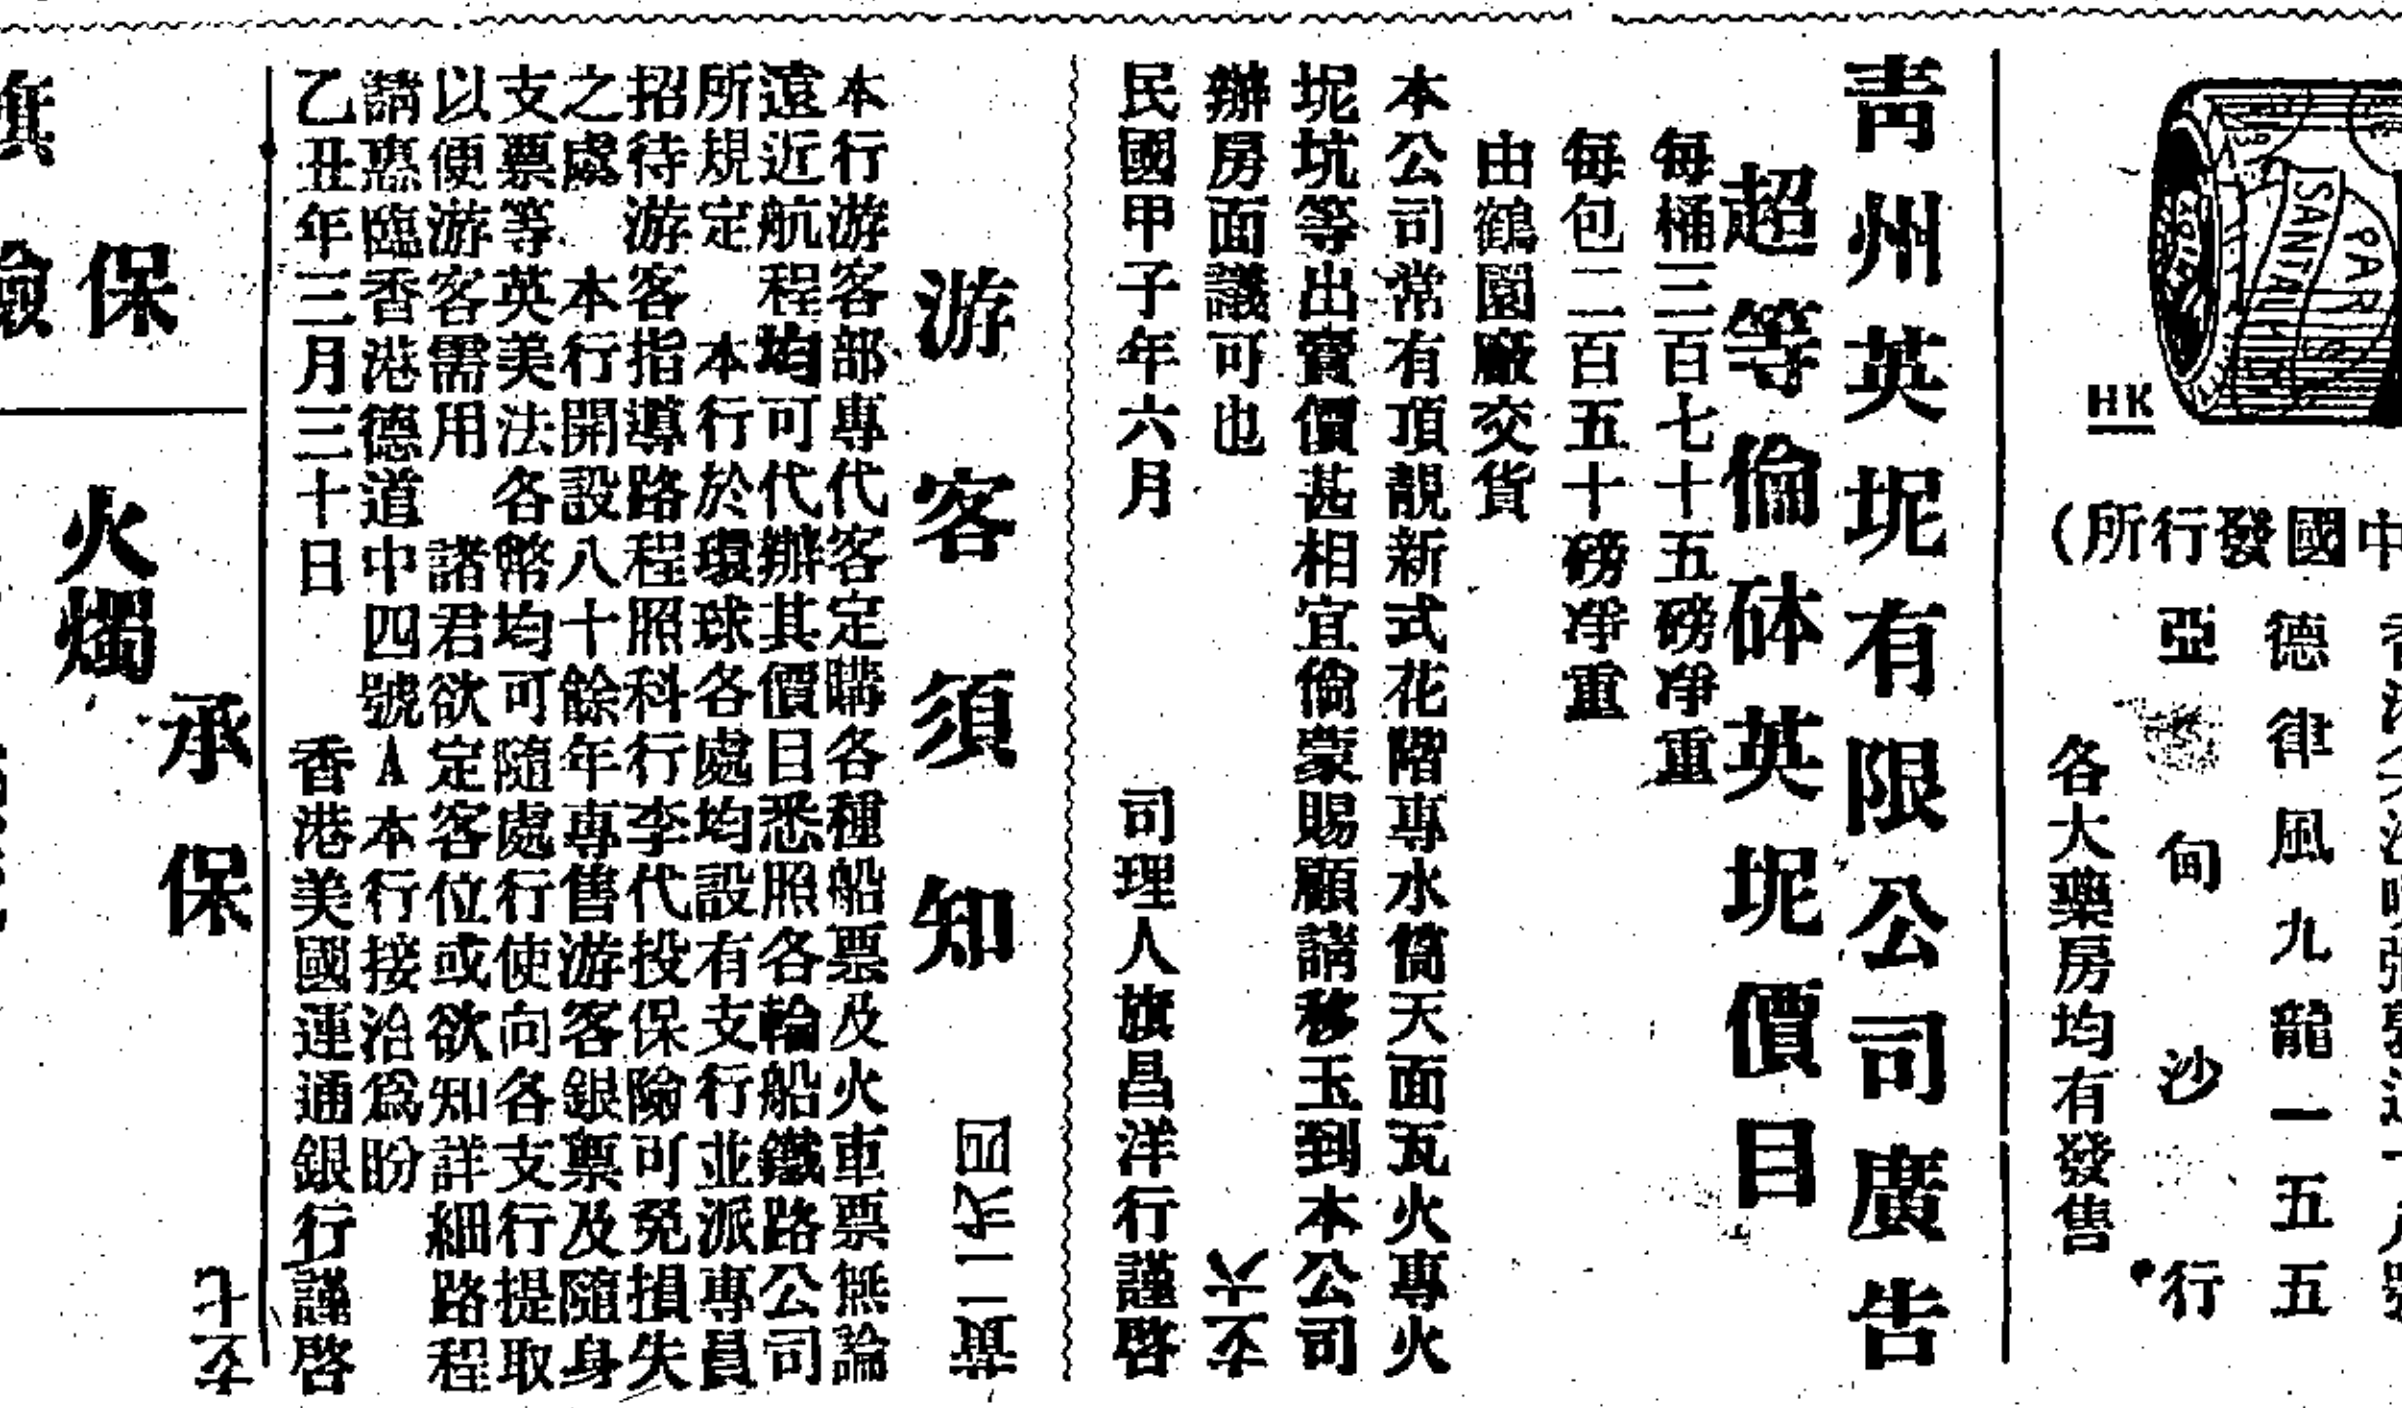 SANTAL
HK
中國發行所）
德律風九龍一五五
亞
甸
沙
行
各大藥房均有發售
青州英坭有限公司廣告
超等倫砵英坭價目
每桶三百七十五磅凈重
每包二百五十磅凈重
由鶴園廠交貨
本公司常有頂靚新式花階專水筒天面瓦火專火
坭坑等出賣價甚相宜倘蒙賜顧請移玉到本公司
辦房面議可也
民國甲子年六月 司理人旗昌洋行謹啓
游客須知
本行游客部專代客定購各種船票及火車票無論
遠近航程均可代辦其價目悉照各輪船鐵路公司
所規定 本行於環球各處均設有支行並派專員
招待游客指導路程照科行李代投保險可免損失
之處 本行開設八十餘年專售游客銀票及隨身
支票等英美法各幣均可隨處行使向各支行提取
以便游客需用 諸君欲定客位或欲知詳細路程
請惠臨香港德道中四號A本行接洽爲盼
乙丑年三月三十日 香港美國運通銀行謹啓
承保
保
火燭
險